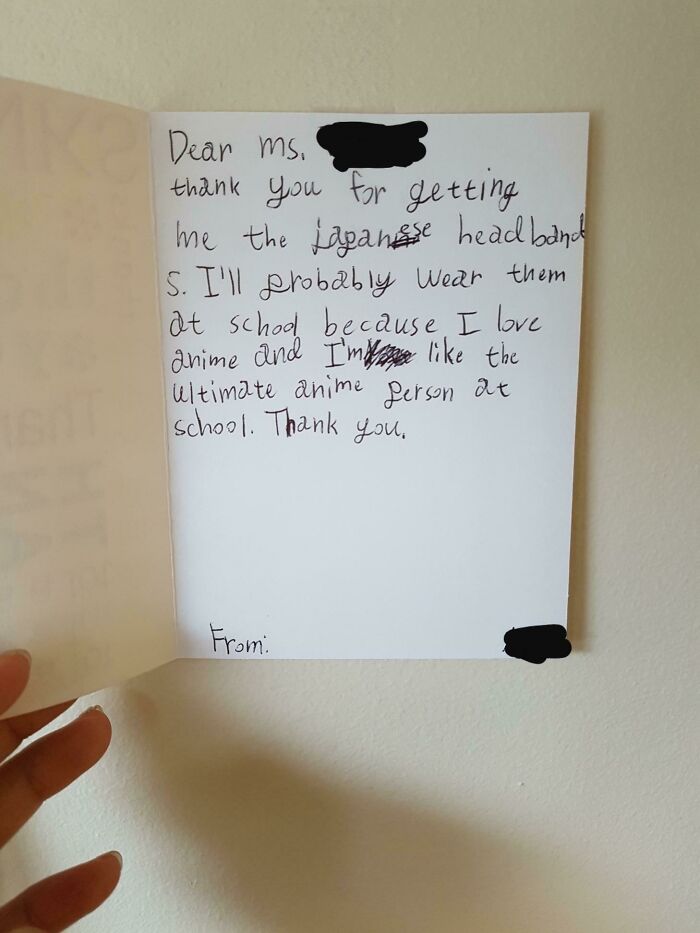 Dear ms.
thank you for getting
me the japanese headband
s. I'll probably wear them
at school because I love
anime and I'm like the
ultimate anime person at
school. Thank you.
From: